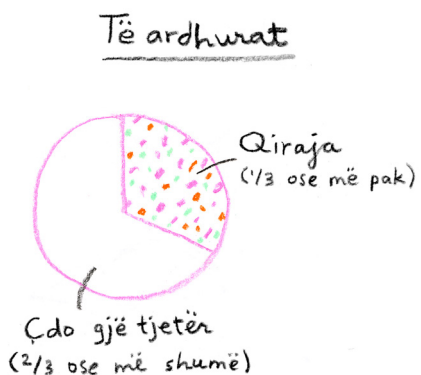 Të ardhurat
Qiraja
(1/3 ose më pak)
Çdo gjë tjetër
(2/3 ose më shumë)